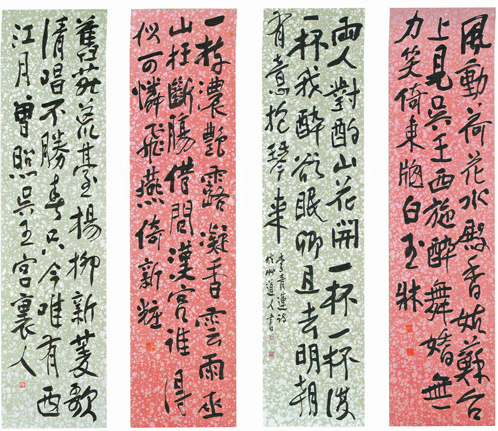 風動荷花水殿香姑蘇台
上見吳王西施醉舞嬌無
力笑倚東牕白玉牀
兩人對酌山花開一杯一杯復
一杯我醉欲眠卿且去明朝
有意抱琴來
李青蓮詩
一枝濃艷露凝香雲雨巫
山枉斷腸借問漢宮誰得
似可憐飛燕倚新粧
舊苑荒臺楊柳新菱歌
清唱不勝春只今唯有西
江月曾照吳王宮裏人